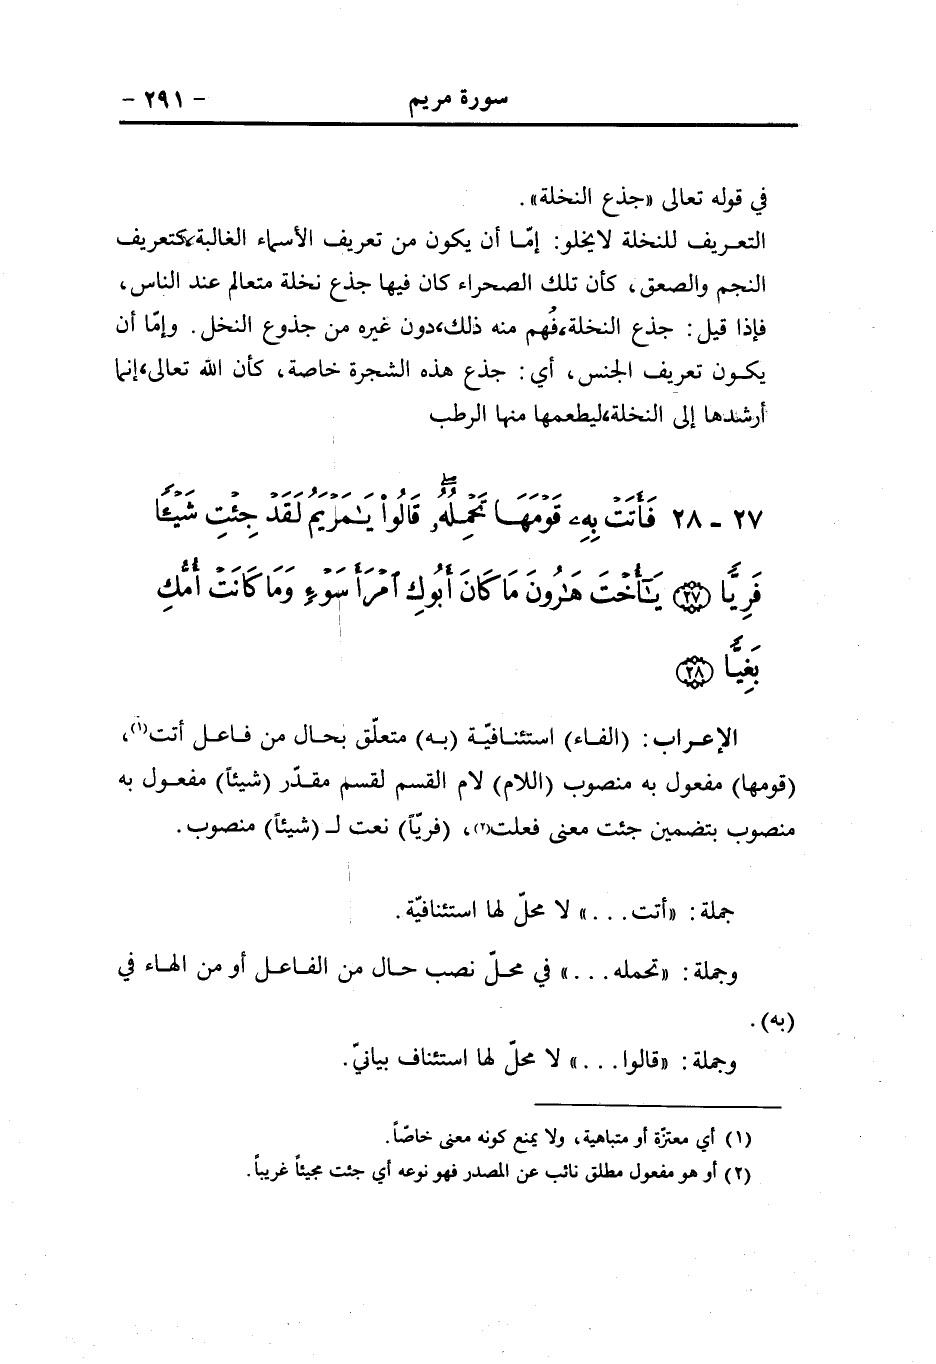 سورة مريم - ٢٩١ -
في قوله تعالى «جذع النخلة».
التعريف للنخلة لا يخلو: إمّا أن يكون من تعريف الأسماء الغالبة، كتعريف
النجم والصعق، كأن تلك الصحراء كان فيها جذع نخلة متعالم عند الناس،
فإذا قيل: جذع النخلة، فُهم منه ذلك، دون غيره من جذوع النخل. وإمّا أن
يكون تعريف الجنس، أي: جذع هذه الشجرة خاصة، كأن الله تعالى، إنما
أرشدها إلى النخلة، ليطعمها منها الرطب
٢٧ - ٢٨ فَأَتَتْ بِهِۦ قَوْمَهَا تَحْمِلُهُۥۖ قَالُوا۟ يَـٰمَرْيَمُ لَقَدْ جِئْتِ شَيْـًٔا
فَرِيًّا ﴿٢٧﴾ يَـٰٓأُخْتَ هَـٰرُونَ مَا كَانَ أَبُوكِ ٱمْرَأَ سَوْءٍ وَمَا كَانَتْ أُمُّكِ
بَغِيًّا ﴿٢٨﴾
الإعراب: (الفاء) استئنافيّة (به) متعلّق بحال من فاعل أتت(١)،
(قومها) مفعول به منصوب (اللام) لام القسم لقسم مقدّر (شيئاً) مفعول به
منصوب بتضمين جئت معنى فعلت(٢)، (فريّاً) نعت لـ (شيئاً) منصوب.
جملة: «أتت...» لا محلّ لها استئنافيّة.
وجملة: «تحمله...» في محلّ نصب حال من الفاعل أو من الهاء في
(به).
وجملة: «قالوا...» لا محلّ لها استئناف بيانيّ.
(١) أي معتزّة أو متباهية، ولا يمنع كونه معنى خاصّاً.
(٢) أو هو مفعول مطلق نائب عن المصدر فهو نوعه أي جئت مجيئاً غريباً.